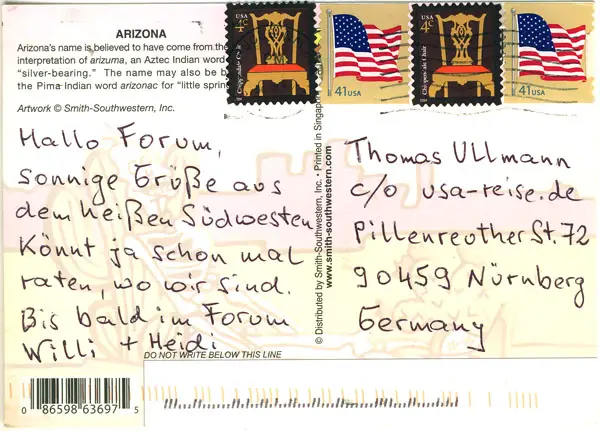 ARIZONA
Arizona's name is believed to have come from the
interpretation of arizuma, an Aztec Indian word
"silver-bearing." The name may also be b
the Pima Indian word arizonac for "little sprin
Artwork © Smith-Southwestern, Inc.
Hallo Forum,
sonnige Grüße aus
dem heißen Südwesten
Könnt ja schon mal
raten, wo wir sind.
Bis bald im Forum
Willi + Heidi
DO NOT WRITE BELOW THIS LINE
0 86598 63697 5
© Distributed by Smith-Southwestern, Inc. • Printed in Singapore
www.smith-southwestern.com
USA 4c
Chippendale Chair
41 USA
USA 4c
Chippendale Chair
41 USA
Thomas Ullmann
c/o usa-reise.de
Pillenreuther St. 72
90459 Nürnberg
Germany